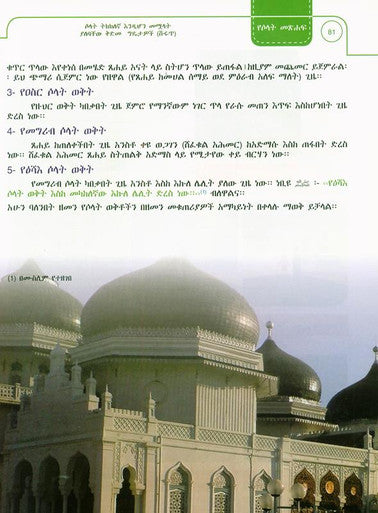 ሶላት ትክክለኛ እንዲሆን መሟላት
ያለባቸው ቅድመ ግዴታዎች (ሹሩጥ)
የሶላት መጽሐፍ
81
ቁጥር ጥላው እየቀነሰ በመሄድ ጸሐይ አናት ላይ ስትሆን ጥላው ይጠፋል፤ ከዚያም መጨመር ይጀምራል፡
፡ ይህ ጭማሪ ሲጀምር ነው የዘዋል (የጸሐይ ከመሀል ሰማይ ወደ ምዕራብ አለፍ ማለት) ጊዜ።
3- የዐስር ሶላት ወቅት
የዙህር ወቅት ካበቃበት ጊዜ ጀምሮ የማንኛውም ነገር ጥላ የራሱ መጠን እጥፍ እስከሆነበት ጊዜ
ድረስ ነው።
4- የመግሪብ ሶላት ወቅት
ጸሐይ ከጠለቀችበት ጊዜ አንስቶ ቀዩ ወጋገን (ሸፈቁል አሕመር) ከአድማሱ እስከ ጠፋበት ድረስ
ነው። ሸፈቁል አሕመር ጸሐይ ስትጠልቅ አድማስ ላይ የሚታየው ቀይ ብርሃን ነው።
5- የዕሻእ ሶላት ወቅት
የመግሪብ ሶላት ካበቃበት ጊዜ አንስቶ እስከ እኩለ ሌሊት ያለው ጊዜ ነው። ነቢዩ ﷺ ፡- «የዕሻእ
ሶላት ወቅት እስከ መካከለኛው እኩለ ሌሊት ድረስ ነው።»(1) ብለዋልና።
አሁን ባለንበት ዘመን የሶላት ወቅቶችን በዘመን መቁጠሪያዎች አማካይነት በቀላሉ ማወቅ ይቻላል።
(1) በሙስሊም የተዘገበ